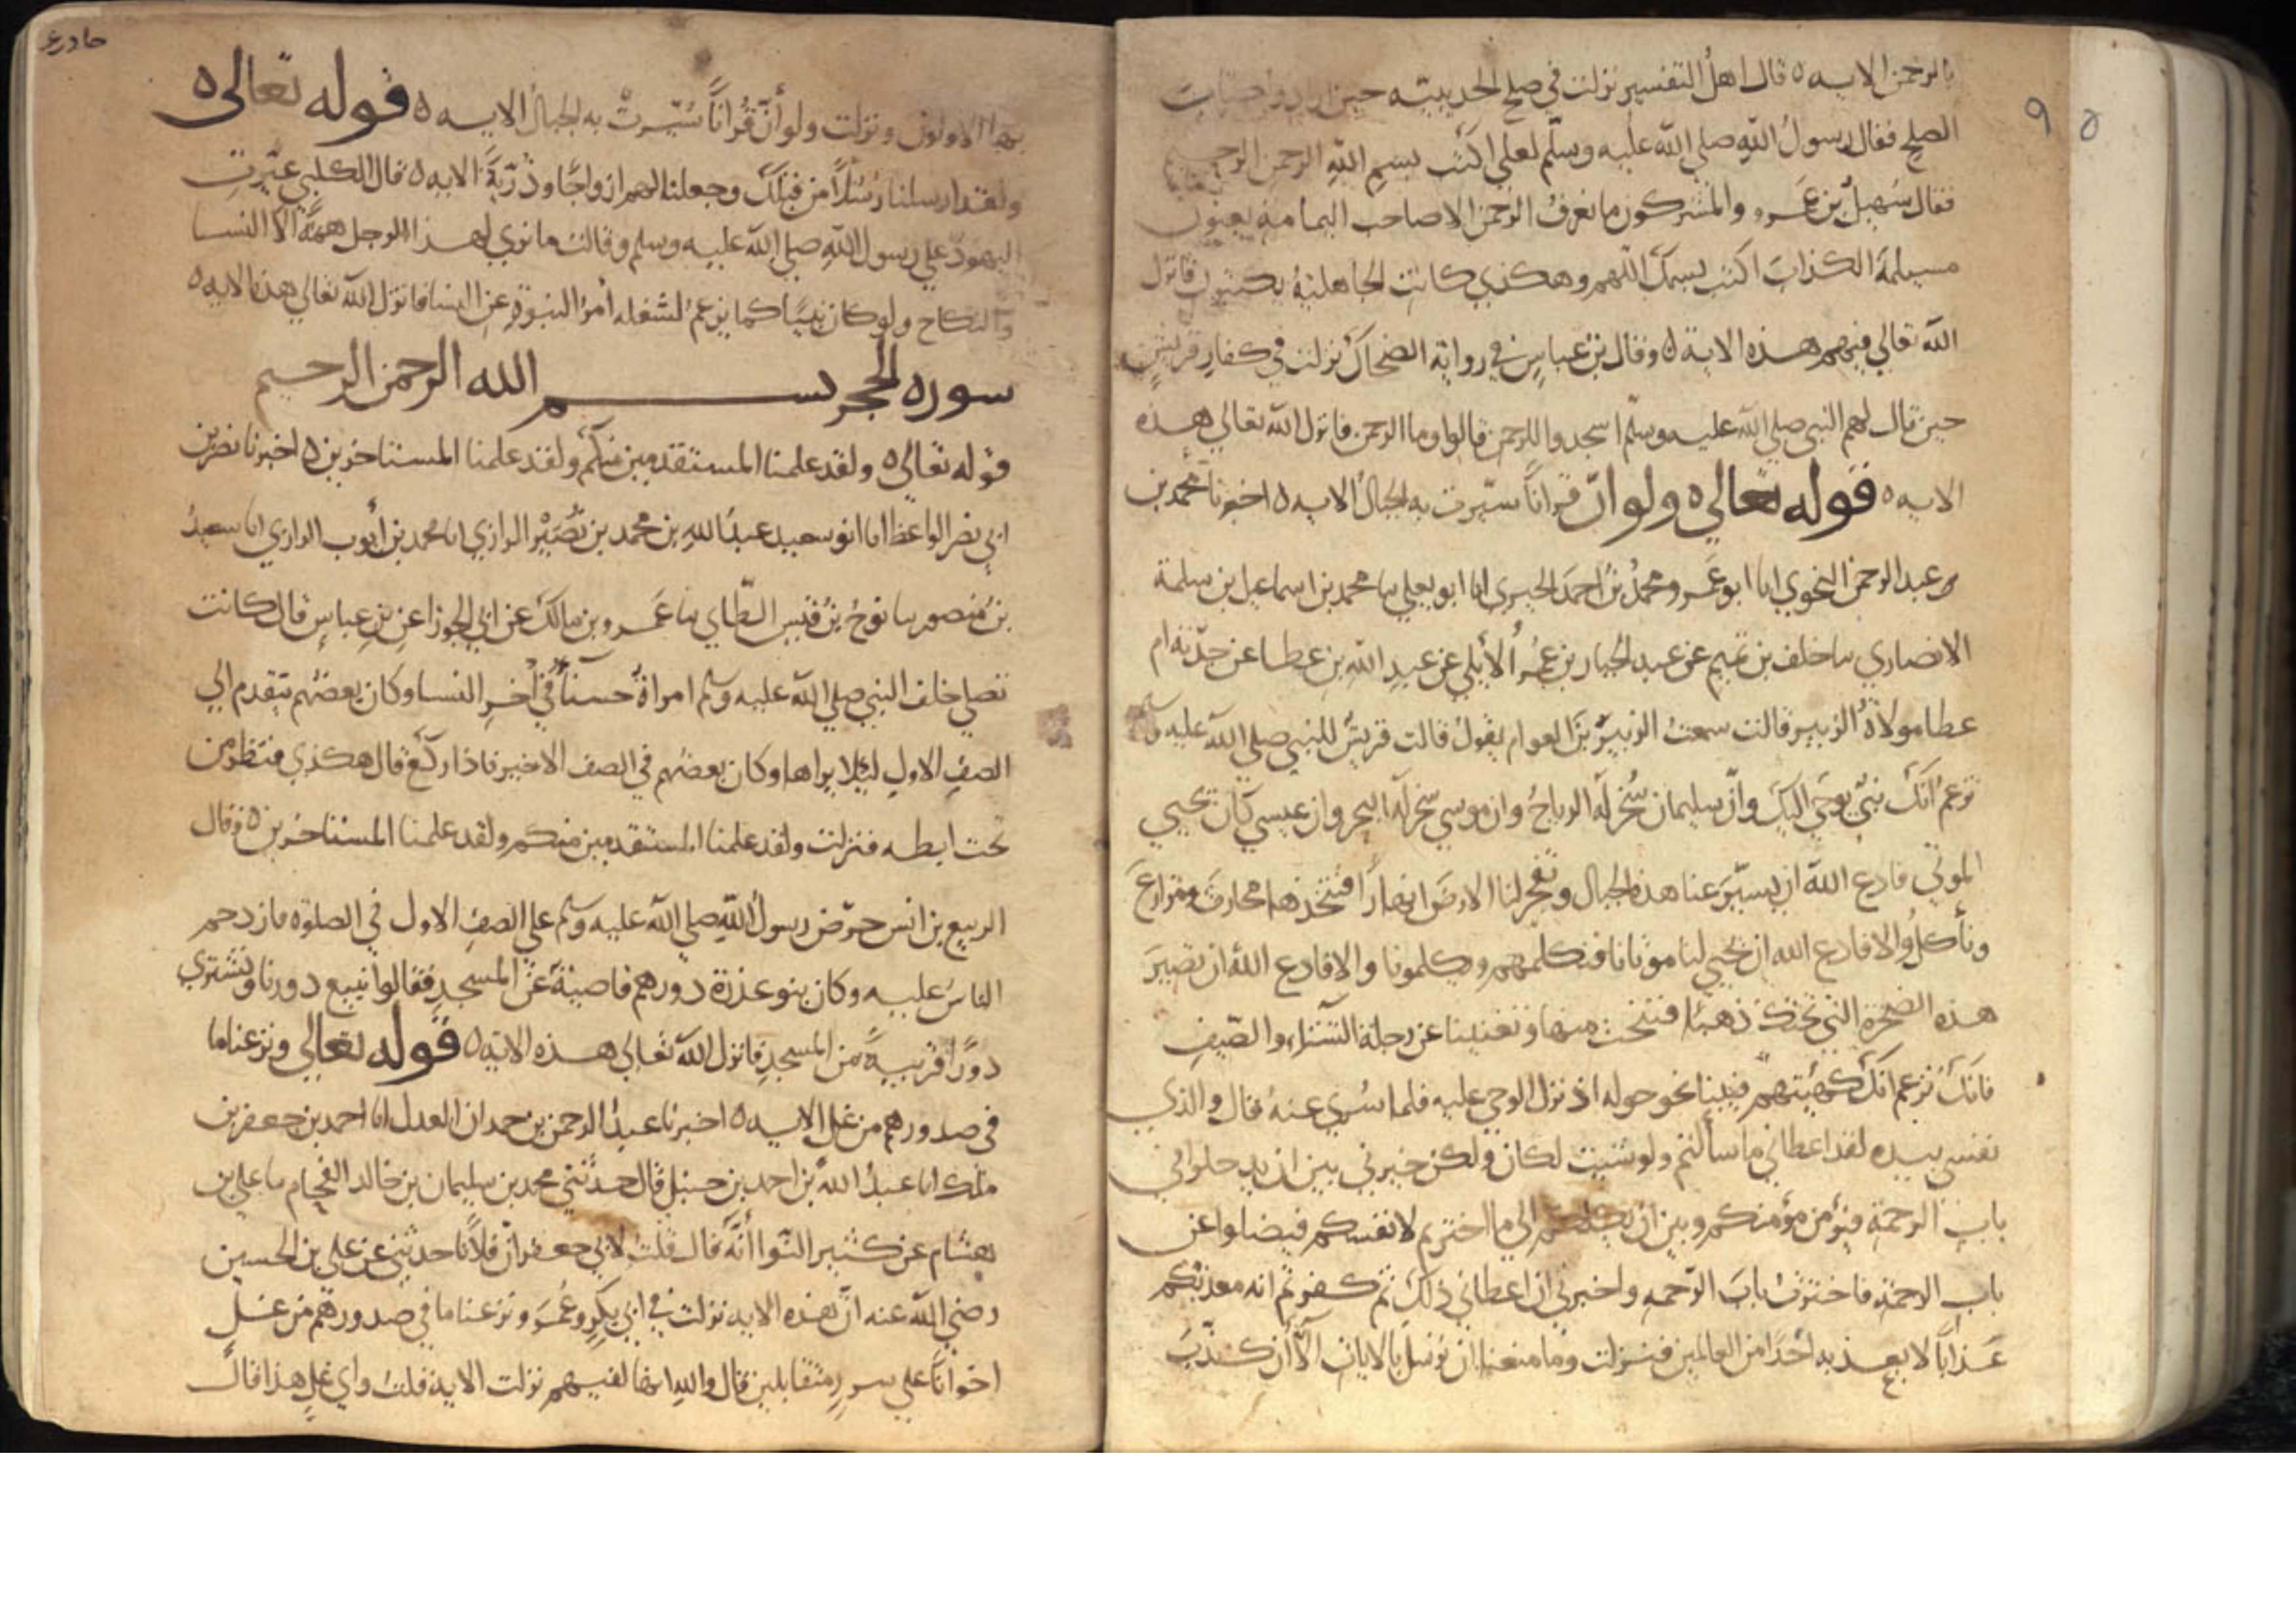 بالرحمن الايه ٥ قال اهل التفسير نزلت في صلح الحديبية حين ارادوا كتاب
الصلح فقال رسول الله صلى الله عليه وسلم لعلي اكتب بسم الله الرحمن الرحيم
فقال سهيل بن عمرو والمشركون ما نعرف الرحمن الا صاحب اليمامة يعنون
مسيلمة الكذاب اكتب بسمك اللهم وهكذي كانت الجاهلية يكتبون فانزل
الله تعالي فيهم هذه الاية ٥ وقال بن عباس في رواية الضحاك نزلت في كفار قريش
حين قال لهم النبي صلي الله عليه وسلم اسجدوا للرحمن قالوا وما الرحمن فانزل الله تعالي هذه
الايه ٥ قوله تعالي ٥ ولو ان قرانا سيرت به الجبال الايه ٥ اخبرنا محمد بن
عبد الرحمن النحوي انا ابو عمرو محمد بن احمد الحيري انا ابو يعلي نا محمد بن اسماعيل بن سلمة
الانصاري نا خلف بن تميم عن عبد الجبار بن عمر الأيلي عن عبد الله بن عطا عن جدته ام
عطا مولاة الزبير قالت سمعت الزبير بن العوام يقول قالت قريش للنبي صلي الله عليه وسلم
تزعم انك نبي يوحي اليك وان سليمان سخر له الرياح وان موسي سخر له البحر وان عيسي كان يحيي
الموتي فادع الله ان يسير عنا هذه الجبال وتفجر لنا الارض انهارا فنتخذها محارث ومزارع
ونأكل والا فادع الله ان يحيي لنا موتانا فنكلمهم ويكلمونا والا فادع الله ان تصير
هذه الصخرة التي تحتك ذهبا فننحت منها وتغنينا عن رحلة الشتاء والصيف
فانك تزعم انك كهيئتهم فبينا نحو حوله اذ نزل الوحي عليه فلما سري عنه قال والذي
نفسي بيده لقد اعطاني ما سألتم ولو شيت لكان ولكن خيرني بين ان يدخلوا في
باب الرحمة فيؤمن مؤمنكم وبين ان يكلكم الي ما اخترتم لانفسكم فيضلوا عن
باب الرحمة فاخترت باب الرحمه واخبرني ان اعطاني ذلك ثم كفرتم انه معذبكم
عذابا لا يعذبه احدا من العالمين فنزلت وما منعنا ان نرسل بالايات الا أن كذب
بها الاولون ونزلت ولو أن قرانا سيرت به الجبال الايه ٥ قوله تعالى ٥
ولقد ارسلنا رسلا من قبلك وجعلنا لهم ازواجا وذرية الايه ٥ قال الكلبي عيرت
اليهود علي رسول الله صلي الله عليه وسلم وقالت ما نري لهذا الرجل همة الا النسا
والنكاح ولو كان نبيا كما يزعم لشغله أمر النبوة عن النسا فانزل الله تعالي هذه الايه ٥
سوره الحجر بسم الله الرحمن الرحيم
قوله تعالي ٥ ولقد علمنا المستقدمين منكم ولقد علمنا المستاخرين ٥ اخبرنا نصر بن
ابي نصر الواعظ انا ابو سعيد عبد الله بن محمد بن نصير الرازي انا محمد بن أيوب الرازي انا سعيد
بن منصور نا نوح بن قيس الطاي نا عمرو بن مالك عن ابي الجوزا عن بن عباس قال كانت
تصلي خلف النبي صلي الله عليه وسلم امراة حسنا في آخر النسا وكان بعضهم يتقدم الي
الصف الاول ليلا يراها وكان بعضهم في الصف الاخير فاذا ركع قال هكذي فنظر من
تحت ابطه فنزلت ولقد علمنا المستقدمين منكم ولقد علمنا المستاخرين ٥ وقال
الربيع بن انس حرض رسول الله صلي الله عليه وسلم علي الصف الاول في الصلوة فازدحم
الناس عليه وكان بنو عذرة دورهم قاصية عن المسجد فقالوا نبيع دورنا ونشتري
دورا قريبة من المسجد فانزل الله تعالي هذه الاية ٥ قوله تعالي ونزعنا ما
في صدورهم من غل الايه ٥ اخبرنا عبد الرحمن بن حمدان العدل انا احمد بن جعفر بن
ملك انا عبد الله بن احمد بن حنبل قال حدثني محمد بن سليمان بن خالد الفحام نا علي بن
هشام عن كثير النوا أنه قال قلت لابي جعفر ان فلانا حدثني عن علي بن الحسين
رضي الله عنه ان هذه الايه نزلت في ابي بكر وعمر ونزعنا ما في صدورهم من غل
اخوانا علي سرر متقابلين قال والله انها لفيهم نزلت الاية قلت واي غل هذا قال